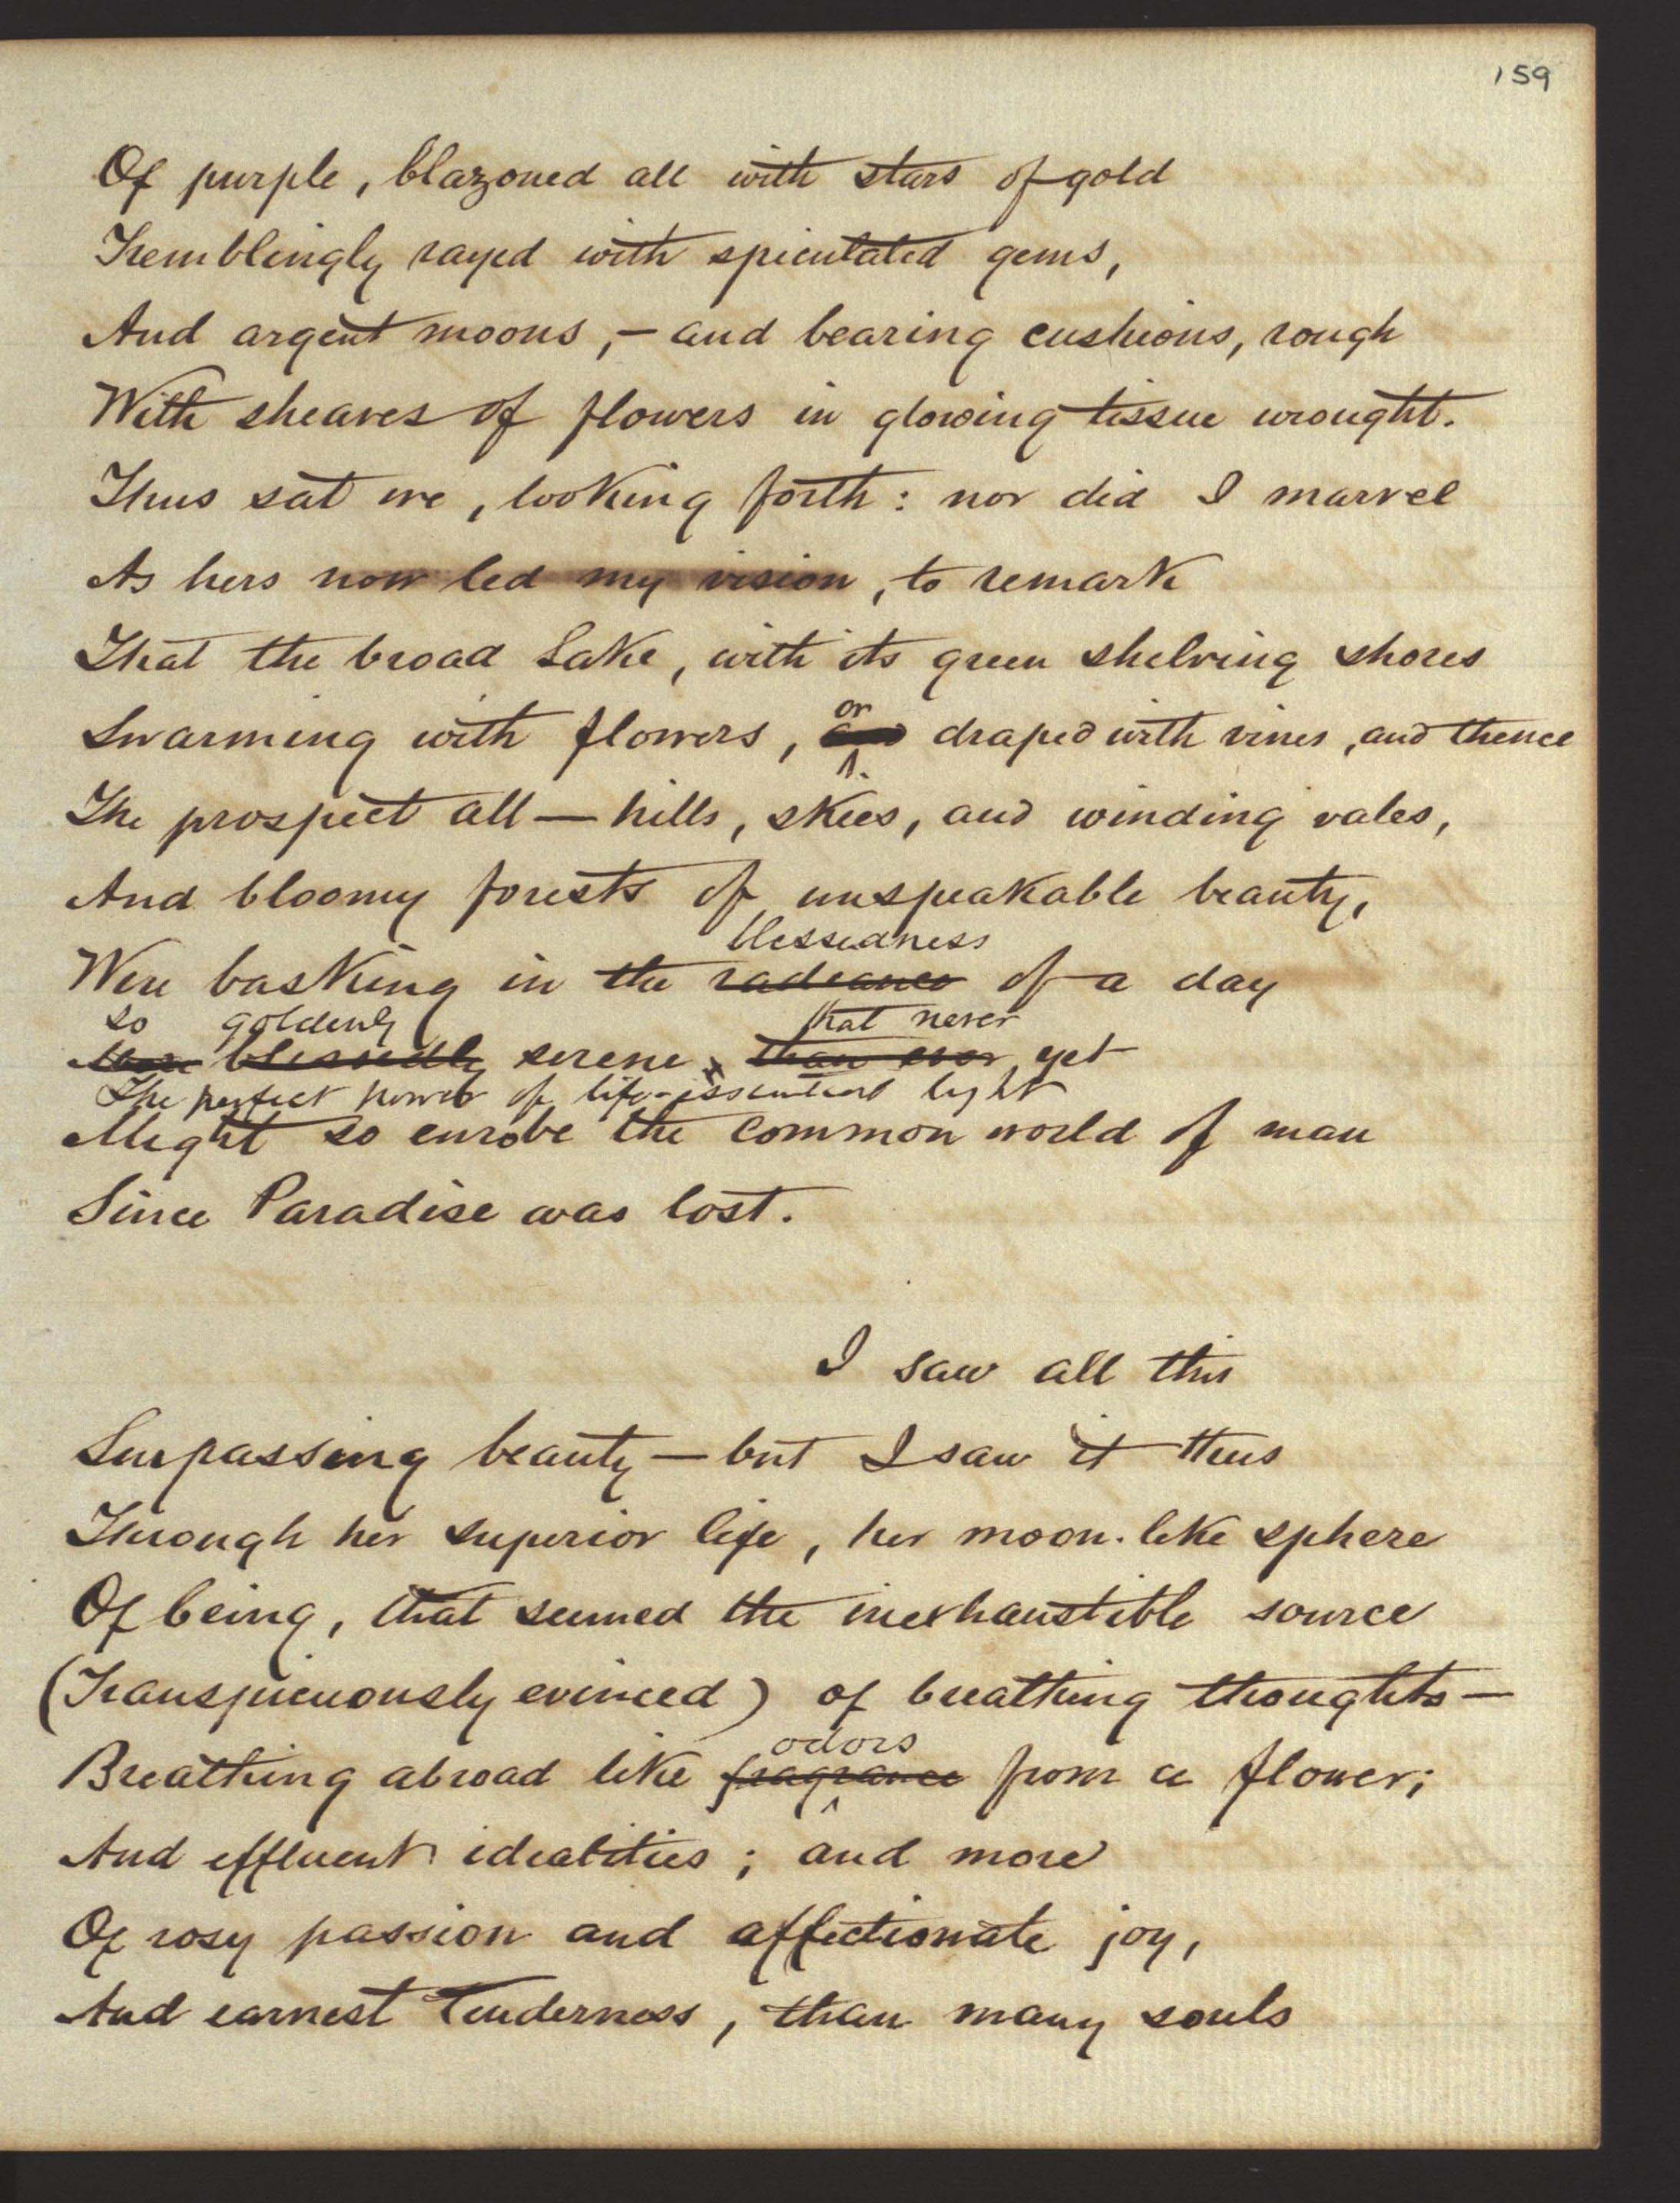 159
Of purple, blazoned all with stars of gold
Tremblingly rayed with spiculated gems,
And argent moons, – and bearing cushions, rough
With sheaves of flowers in glowing tissue wrought.
Thus sat we, looking forth: nor did I marvel
As hers now led my vision, to remark
That the broad Lake, with its green shelving shores
or
Swarming with flowers, and draped with vines, and thence
The prospect all — hills, skies, and winding vales,
And bloomy forests of unspeakable beauty,
blessedness
Were basking in the radiance of a day
so goldenly that never
More blessedly serene, than ever yet
The perfect power of life-essential light
Might so enrobe the common world of man
Since Paradise was lost.
I saw all this
Surpassing beauty — but I saw it thus
Through her superior life, her moon-like sphere
Of being, that seemed the inexhaustible source
(Transpicuously evinced) of breathing thoughts —
odors
Breathing abroad like fragrance from a flower;
And effluent idealities; and more
Of rosy passion and affectionate joy,
And earnest tenderness, than many souls